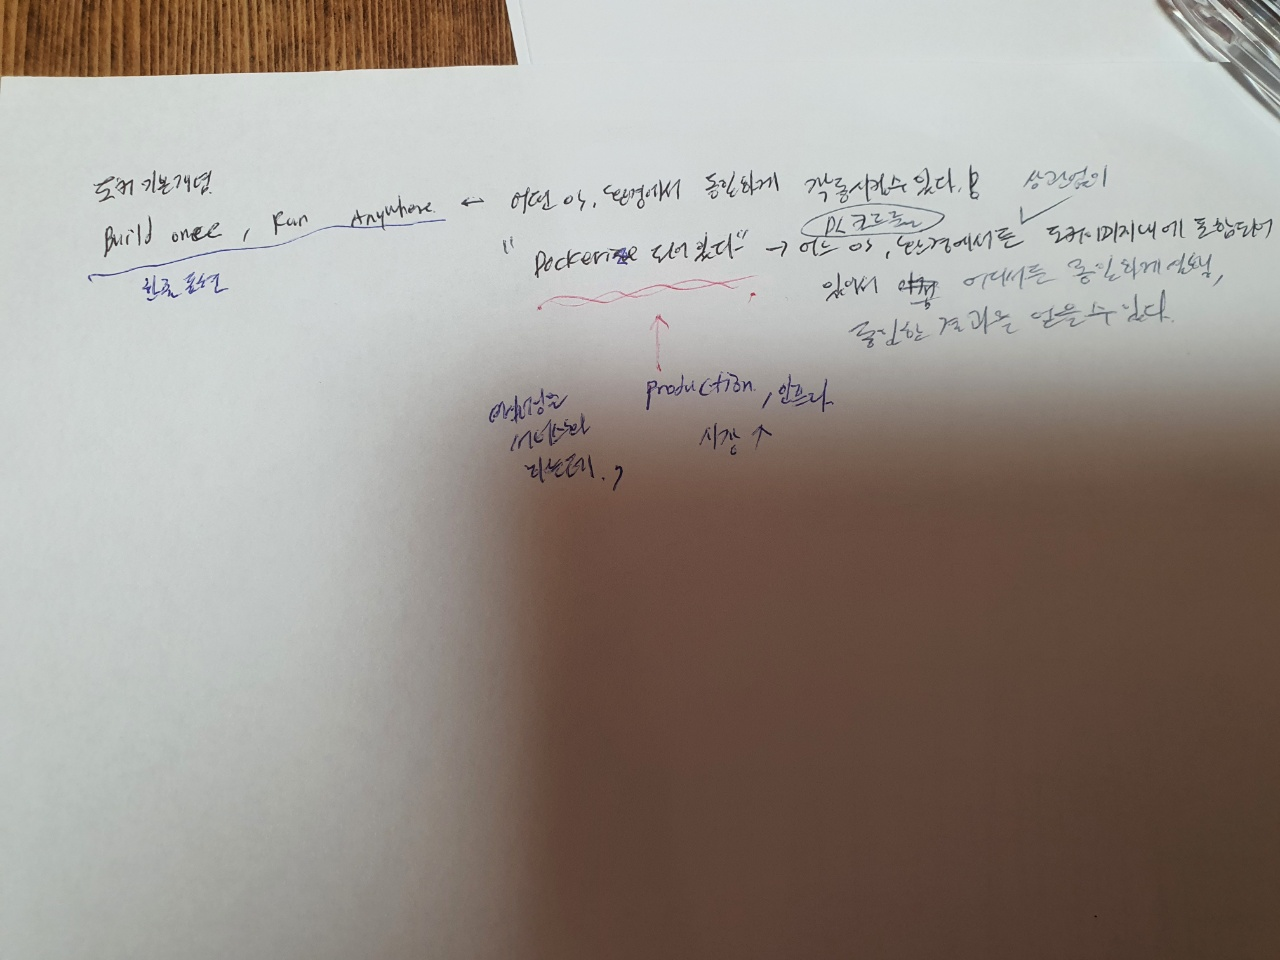 도커 기본개념
Build once, Run Anywhere ← 어떤 OS, 환경에서 동일하게 작동시킬수 있다!
한줄 표현
상관없이
DL 코드를
"Dockerize 되어 있다" → 어느 OS, 환경에서든 도커이미지 내에 포함되어
있어서 어디서든 동일하게 실행,
동일한 결과를 얻을 수 있다.
production, 인프라
시장 ↑